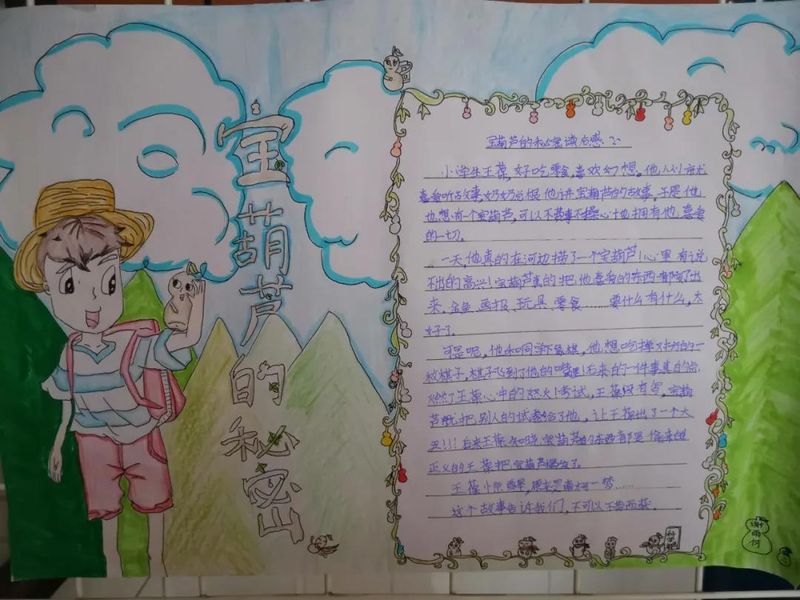 宝葫芦的秘密
宝葫芦的秘密读后感
小学生王葆,好吃零食,喜欢幻想。他从小就
喜爱听故事奶奶给他讲宝葫芦的故事,于是他
也想有个宝葫芦,可以不费事不操心地拥有他喜爱
的一切。
一天他真的在河边捞了一个宝葫芦!心里有说
不出的高兴!宝葫芦真的把他喜爱的东西都变了出
来,金鱼 画报、玩具、零食……要什么有什么,太
好了。
可是呢,他和同学下象棋,他想吃掉对方的一
枚棋子,棋子飞到了他的嘴里!后来的一件事真的
燃了王葆心中的怒火!考试。王葆没有写,宝葫
芦就把别人的试卷给了他,让王葆出了一个大
丑!!!后来王葆知晓宝葫芦的东西都是偷来的
正义的王葆把宝葫芦
王葆小睡醒来,原来是南柯一梦……
这个故事告诉我们,不可以不劳而获。
谢雨何